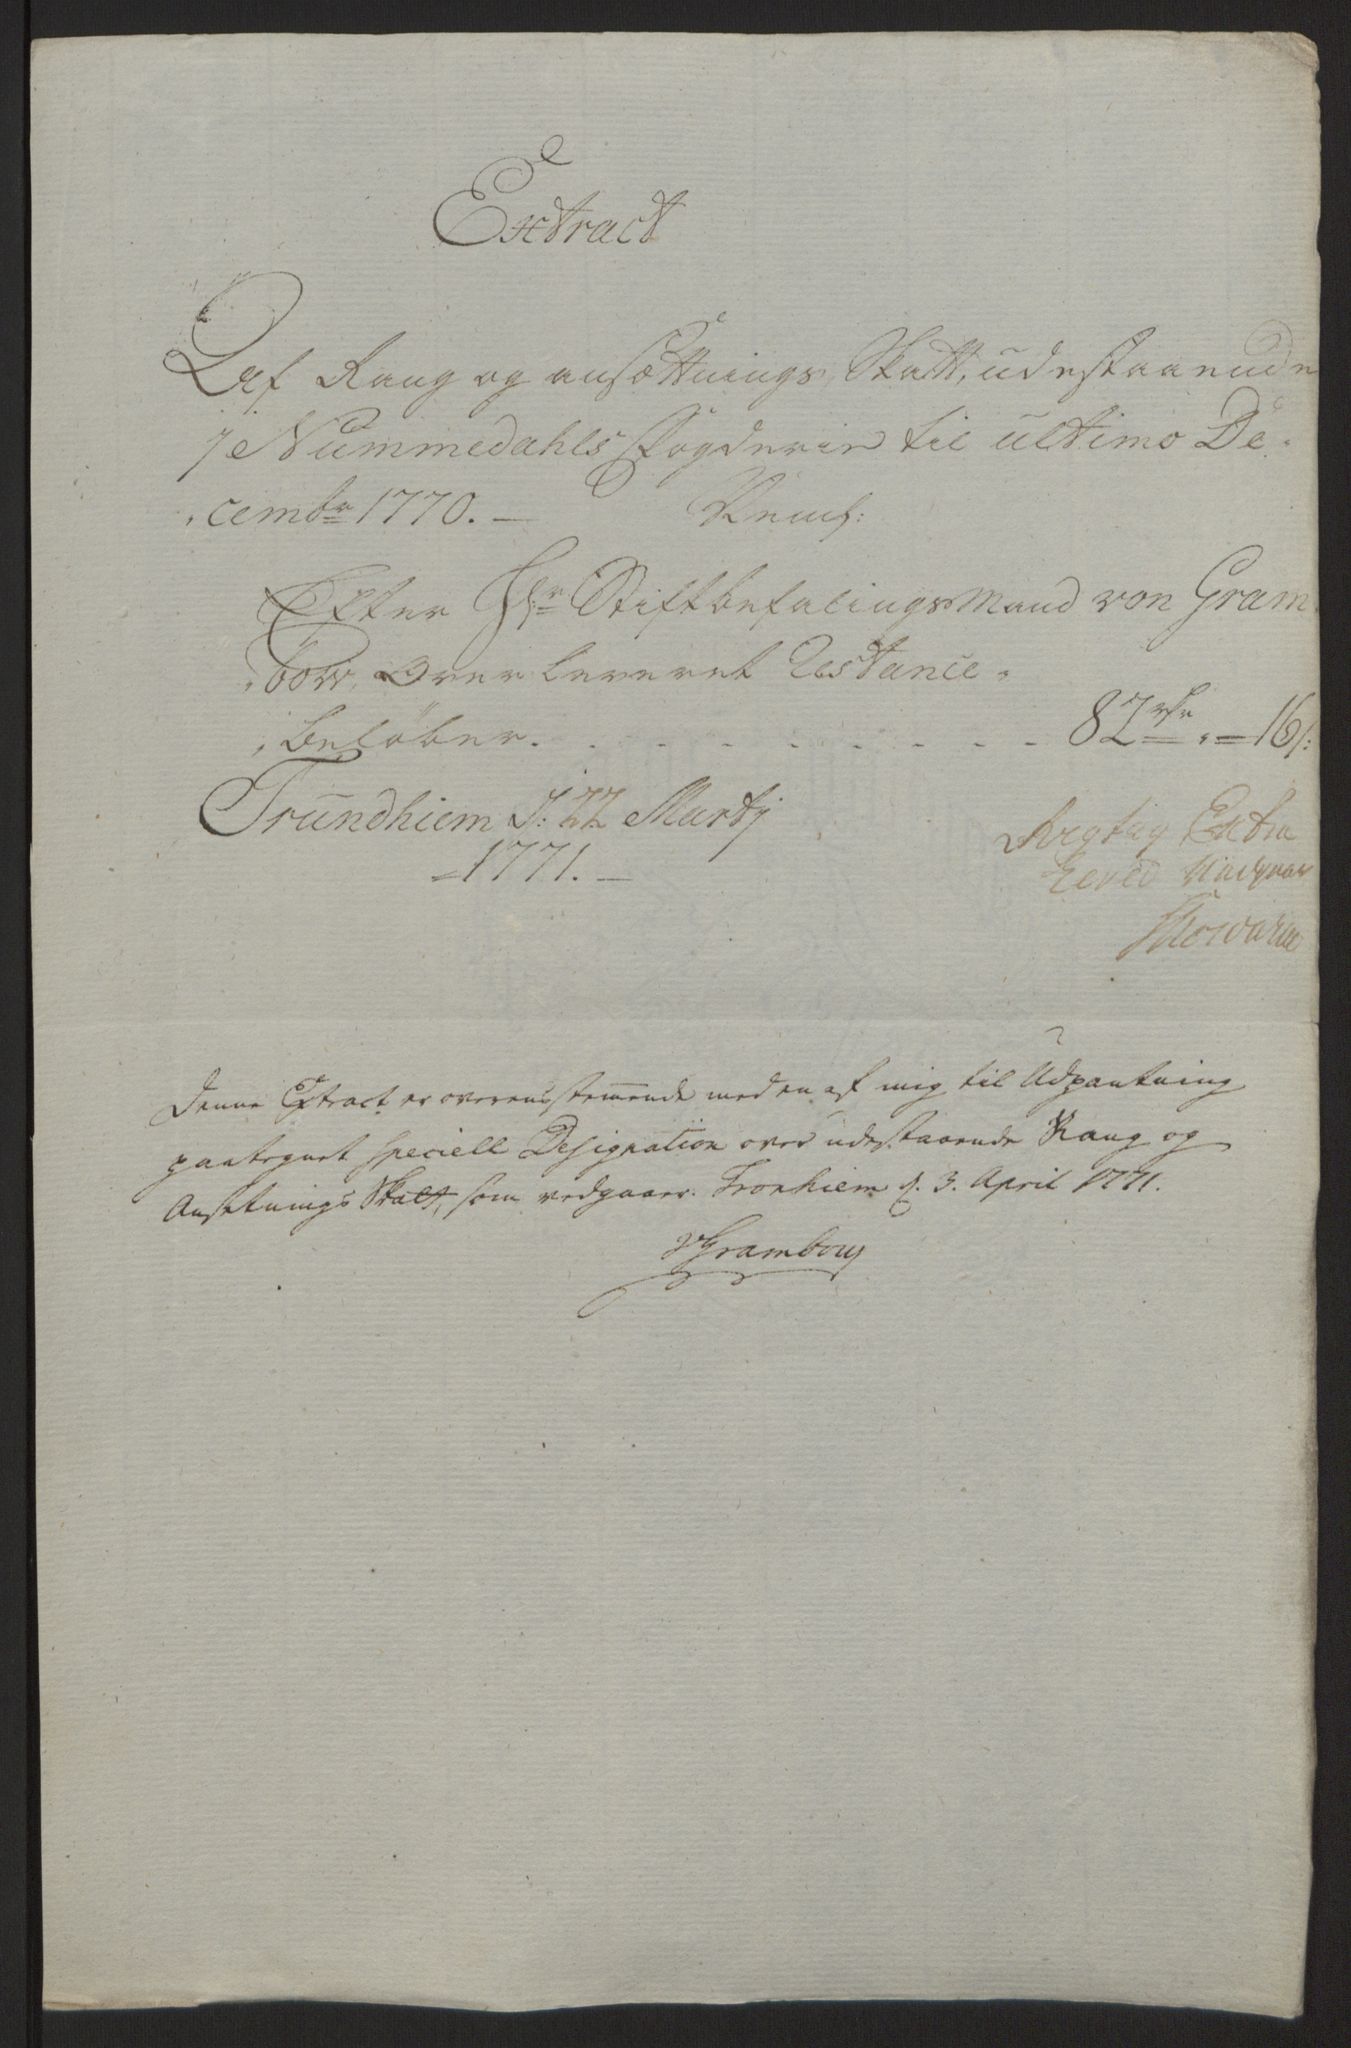 Extract
Af Rang og ansættnings Skatt, udestaaende
i Nummedahls Fogderie til ultimo De-
cembr 1770. —
Efter Hr Stiftbefalingsmand von Gram-
bow, Overleveret Restance
beløber . . . . . . . . . 82 rdr " 16 s:
Trundhiem d: 22 Martij
1771. —
Rigtig Extra
Denne Extract er overensstemmende med en af mig til Udpantning
paategnet speciell Designation over udestaaende Rang og
Ansetnings Skatt, som vedgaaer. Tronhiem d. 3. April 1771.
vGrambow